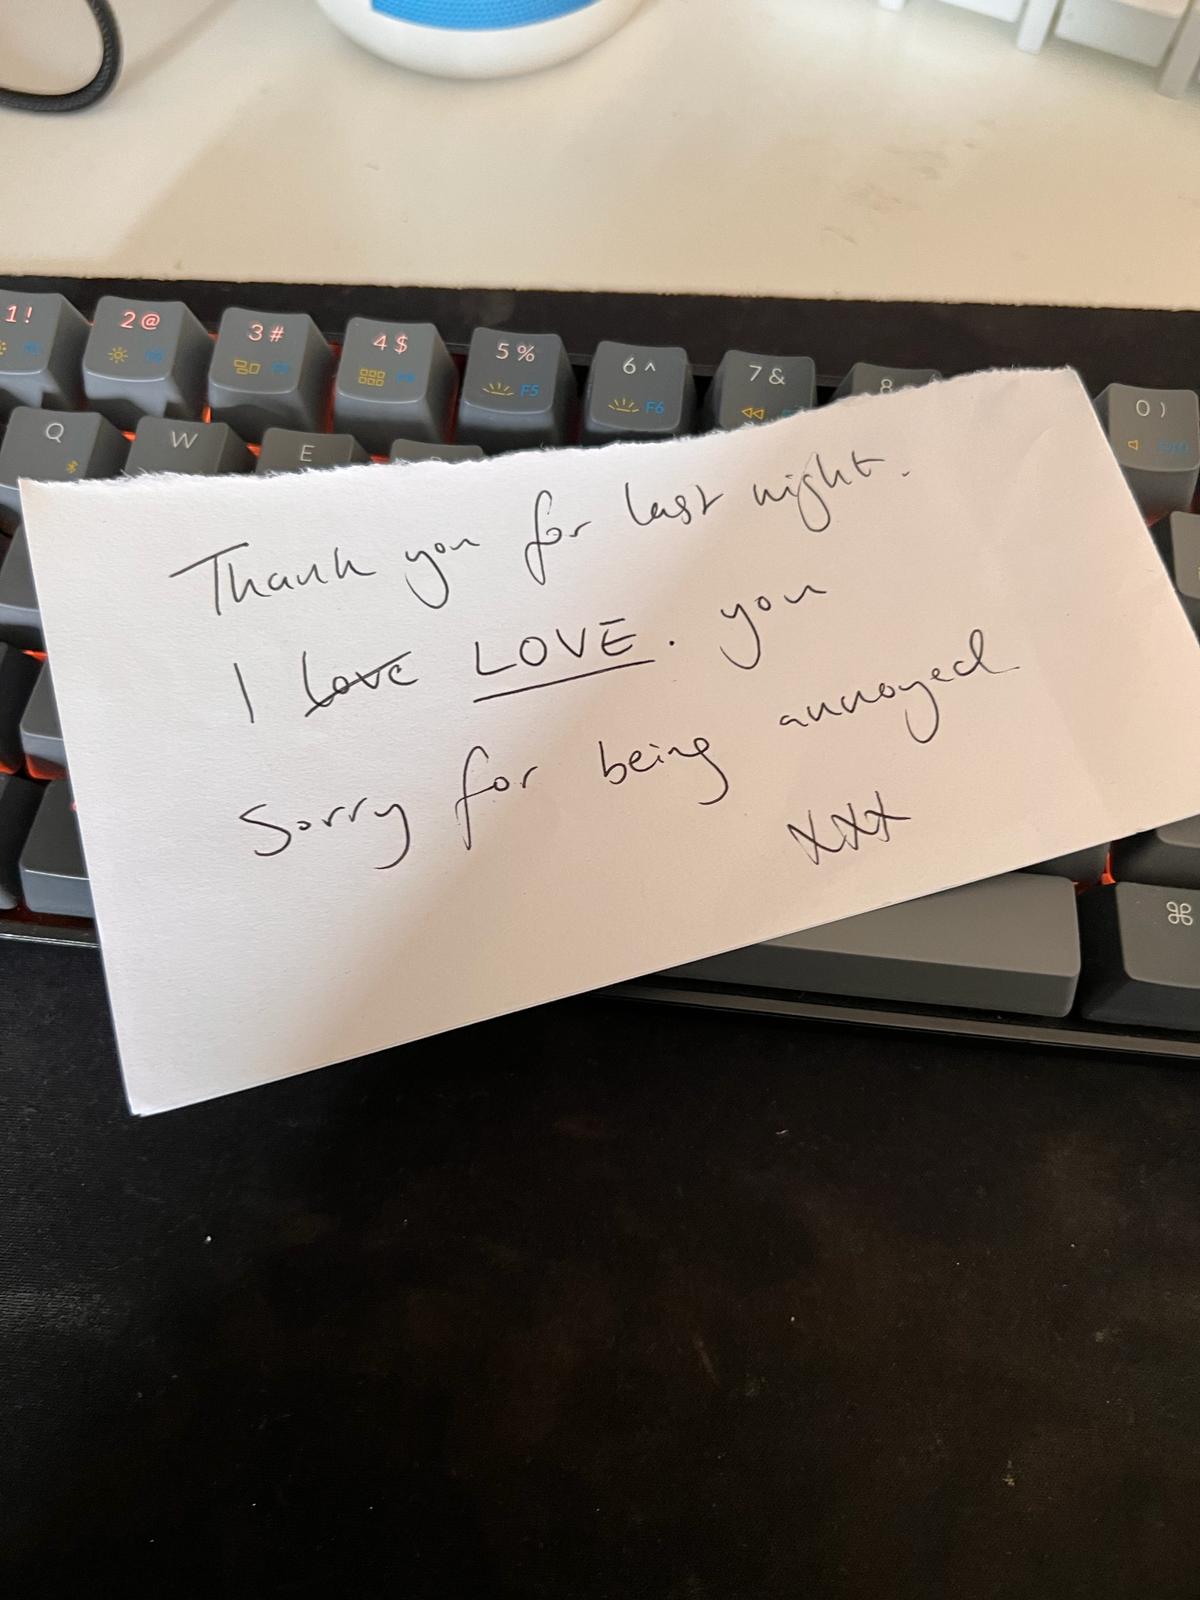 1 !
2 @
3 #
4 $
5 % F5
6 ^ F6
7 &
8
0 )
Q
W
E
Thank you for last night.
I love LOVE. you
Sorry for being annoyed
xxx
⌘